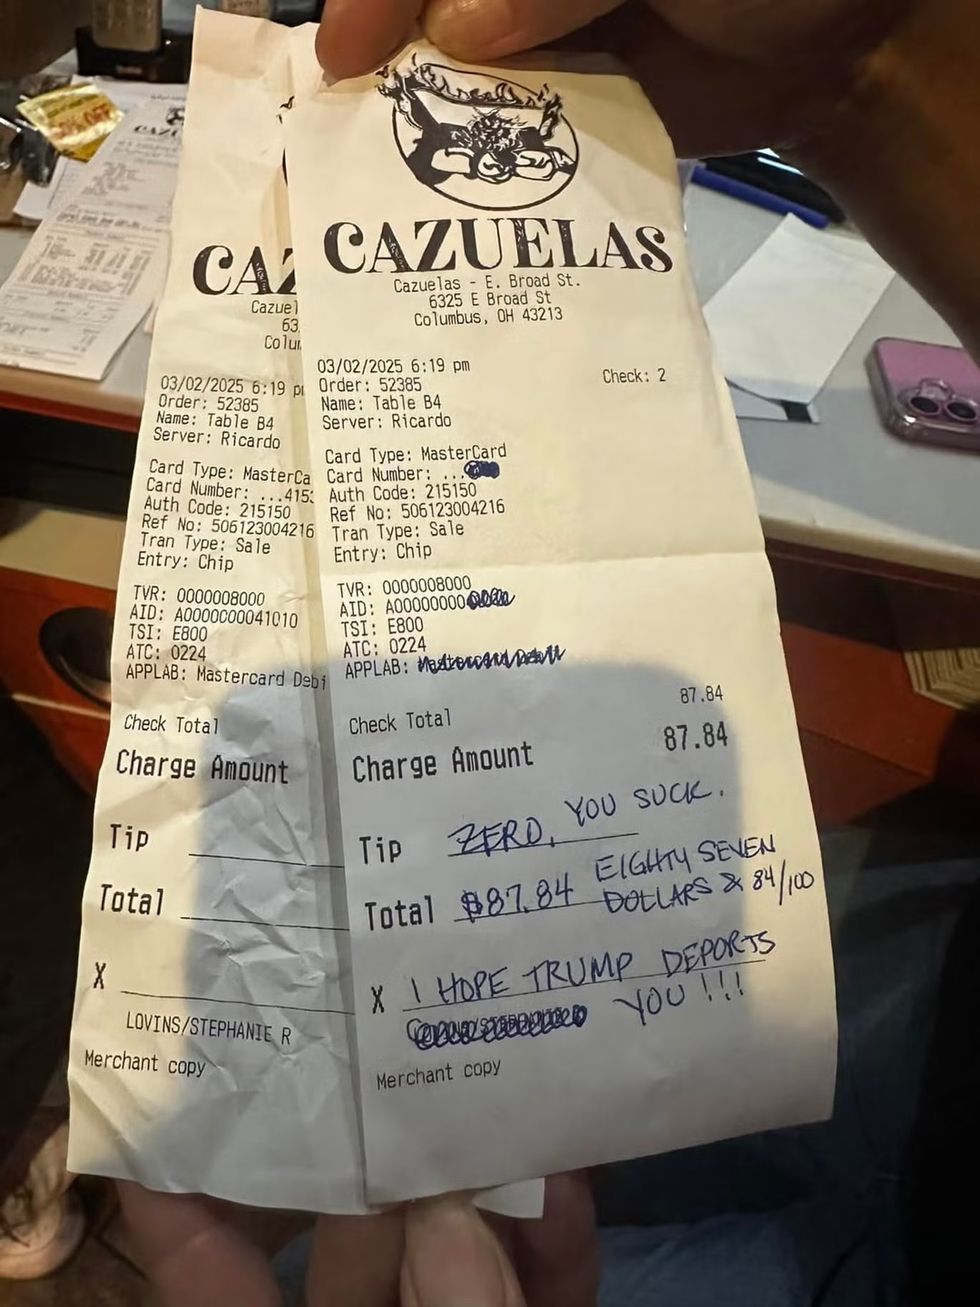 CAZ
Cazue
63
Colu
03/02/2025 6:19 p
Order: 52385
Name: Table B4
Server: Ricardo
Card Type: MasterCa
Card Number: ...415
Auth Code: 215150
Ref No: 506123004216
Tran Type: Sale
Entry: Chip
TVR: 0000008000
AID: A0000000041010
TSI: E800
ATC: 0224
APPLAB: Mastercard Debi
Check Total
Charge Amount
Tip
Total
X
LOVINS/STEPHANIE R
Merchant copy
CAZUELAS
Cazuelas - E. Broad St.
6325 E Broad St
Columbus, OH 43213
03/02/2025 6:19 pm
Order: 52385 Check: 2
Name: Table B4
Server: Ricardo
Card Type: MasterCard
Card Number: ...
Auth Code: 215150
Ref No: 506123004216
Tran Type: Sale
Entry: Chip
TVR: 0000008000
AID: A00000000
TSI: E800
ATC: 0224
APPLAB:
Check Total 87.84
Charge Amount 87.84
Tip ZERO, YOU SUCK.
Total $87.84 EIGHTY SEVEN
DOLLARS & 84/100
X I HOPE TRUMP DEPORTS
YOU!!!
Merchant copy